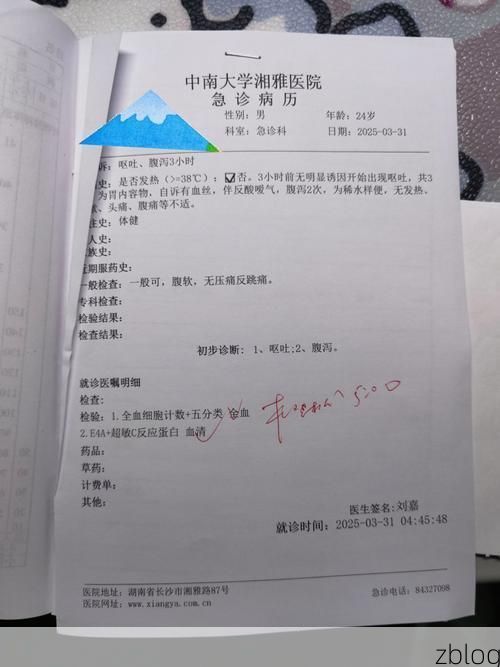 中南大学湘雅医院
急诊病历
性别：男 年龄：24岁
科室：急诊科 日期：2025-03-31
诉：呕吐、腹泻3小时
史：是否发热(>=38℃)：☑否。3小时前无明显诱因开始出现呕吐，共3
为胃内容物，自诉有血丝，伴反酸嗳气，腹泻2次，为稀水样便，无发热、
、头痛、腹痛等不适。
往史：体健
人史：
族史：
近期服药史：
一般检查：一般可，腹软，无压痛反跳痛。
专科检查：
检验结果：
检查结果：
初步诊断： 1、呕吐;2、腹泻。
就诊医嘱明细
检查：
检验：1.全血细胞计数+五分类 全血
2.E4A+超敏C反应蛋白 血清
药品：
草药：
计费单：
其他：
医生签名:刘嘉
就诊时间：2025-03-31 04:45:48
医院地址：湖南省长沙市湘雅路87号 急诊电话：84327098
医院网址：www.xiangya.com.cn
zblog